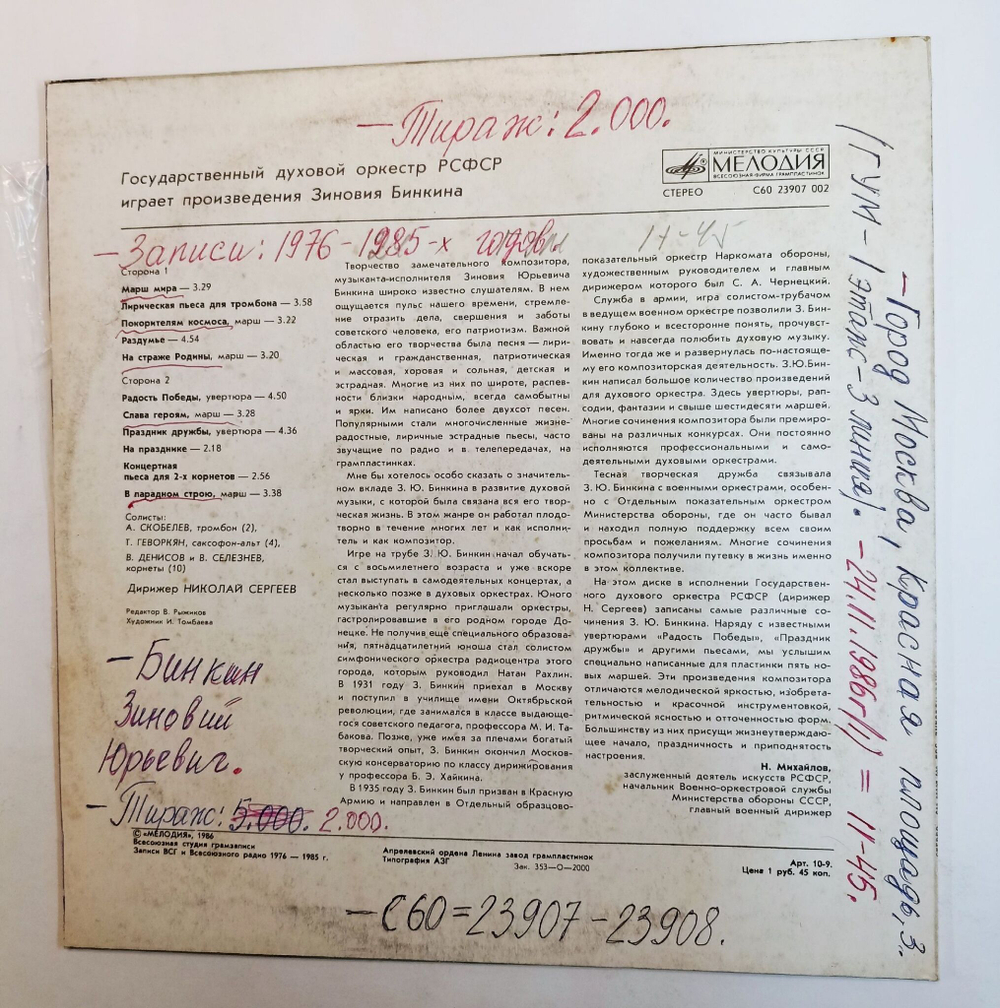 —Тираж: 2.000.
Государственный духовой оркестр РСФСР
играет произведения Зиновия Бинкина
МИНИСТЕРСТВО КУЛЬТУРЫ СССР
МЕЛОДИЯ
ВСЕСОЮЗНАЯ ФИРМА ГРАМПЛАСТИНОК
СТЕРЕО С60 23907 002
—Записи: 1976 – 1985-х годов.
1р-45
Сторона 1
Марш мира — 3.29
Лирическая пьеса для тромбона — 3.58
Покорителям космоса, марш — 3.22
Раздумье — 4.54
На страже Родины, марш — 3.20
Сторона 2
Радость Победы, увертюра — 4.50
Слава героям, марш — 3.28
Праздник дружбы, увертюра — 4.36
На празднике — 2.18
Концертная
пьеса для 2-х корнетов — 2.56
В парадном строю, марш — 3.38
Солисты:
А. СКОБЕЛЕВ, тромбон (2),
Т. ГЕВОРКЯН, саксофон-альт (4),
В. ДЕНИСОВ и В. СЕЛЕЗНЕВ,
корнеты (10)
Дирижер НИКОЛАЙ СЕРГЕЕВ
Редактор В. Рыжиков
Художник И. Томбаева
—Бинкин
Зиновий
Юрьевич.
—Тираж: 5.000. 2.000.
Творчество замечательного композитора,
музыканта-исполнителя Зиновия Юрьевича
Бинкина широко известно слушателям. В нем
ощущается пульс нашего времени, стремле-
ние отразить дела, свершения и заботы
советского человека, его патриотизм. Важной
областью его творчества была песня — лири-
ческая и гражданственная, патриотическая
и массовая, хоровая и сольная, детская и
эстрадная. Многие из них по широте, распев-
ности близки народным, всегда самобытны
и ярки. Им написано более двухсот песен.
Популярными стали многочисленные жизне-
радостные, лиричные эстрадные пьесы, часто
звучащие по радио и в телепередачах, на
грампластинках.
Мне бы хотелось особо сказать о значитель-
ном вкладе З. Ю. Бинкина в развитие духовой
музыки, с которой была связана вся его твор-
ческая жизнь. В этом жанре он работал плодо-
творно в течение многих лет и как исполни-
тель и как композитор.
Игре на трубе З. Ю. Бинкин начал обучать-
ся с восьмилетнего возраста и уже вскоре
стал выступать в самодеятельных концертах, а
несколько позже в духовых оркестрах. Юного
музыканта регулярно приглашали оркестры,
гастролировавшие в его родном городе До-
нецке. Не получив ещё специального образова-
ния, пятнадцатилетний юноша стал солистом
симфонического оркестра радиоцентра этого
города, которым руководил Натан Рахлин.
В 1931 году З. Бинкин приехал в Москву
и поступил в училище имени Октябрьской
революции, где занимался в классе выдающе-
гося советского педагога, профессора М. И. Та-
бакова. Позже, уже имея за плечами богатый
творческий опыт, З. Бинкин окончил Москов-
скую консерваторию по классу дирижирования
у профессора Б. Э. Хайкина.
В 1935 году З. Бинкин был призван в Красную
Армию и направлен в Отдельный образцово-
показательный оркестр Наркомата обороны,
художественным руководителем и главным
дирижером которого был С. А. Чернецкий.
Служба в армии, игра солистом-трубачом
в ведущем военном оркестре позволили З. Бин-
кину глубоко и всесторонне понять, прочувст-
вовать и навсегда полюбить духовую музыку.
Именно тогда же и развернулась по-настояще-
му его композиторская деятельность. З.Ю.Бин-
кин написал большое количество произведений
для духового оркестра. Здесь увертюры, рап-
содии, фантазии и свыше шестидесяти маршей.
Многие сочинения композитора были премиро-
ваны на различных конкурсах. Они постоянно
исполняются профессиональными и само-
деятельными духовыми оркестрами.
Тесная творческая дружба связывала
З. Ю. Бинкина с военными оркестрами, особен-
но с Отдельным показательным оркестром
Министерства обороны, где он часто бывал
и находил полную поддержку всем своим
просьбам и пожеланиям. Многие сочинения
композитора получили путевку в жизнь именно
в этом коллективе.
На этом диске в исполнении Государствен-
ного духового оркестра РСФСР (дирижер
Н. Сергеев) записаны самые различные со-
чинения З. Ю. Бинкина. Наряду с известными
увертюрами «Радость Победы», «Праздник
дружбы» и другими пьесами, мы услышим
специально написанные для пластинки пять но-
вых маршей. Эти произведения композитора
отличаются мелодической яркостью, изобрета-
тельностью и красочной инструментовкой,
ритмической ясностью и отточенностью форм.
Большинству из них присущи жизнеутверждаю-
щее начало, праздничность и приподнятость
настроения.
Н. Михайлов,
заслуженный деятель искусств РСФСР,
начальник Военно-оркестровой службы
Министерства обороны СССР,
главный военный дирижер
© «МЕЛОДИЯ», 1986
Всесоюзная студия грамзаписи
Записи ВСГ и Всесоюзного радио 1976 — 1985 г.
Апрелевский ордена Ленина завод грампластинок
Типография АЗГ
Зак. 353—О—2000
Арт. 10-9.
Цена 1 руб. 45 коп.
—С60=23907–23908.
—Город Москва, Красная площадь, 3.
(ГУМ–1 этаж–3 линия). —24.11.1986г.
= 1р-45.